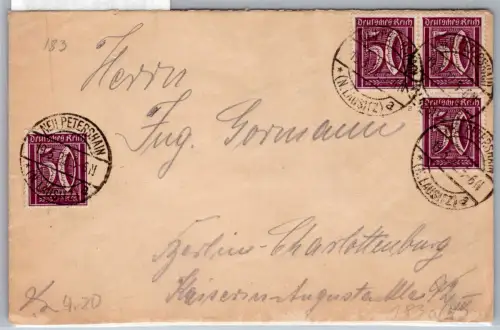 183
Deutsches Reich
50
Deutsches Reich
50
(N. LAUSITZ)
Herrn
Ing. Gormann
Deutsches Reich
50
(N. LAUSITZ)
NEU PETERSHAIN
Deutsches Reich
50
Berlin-Charlottenburg
Kaiserin-Augusta Allee
4.20